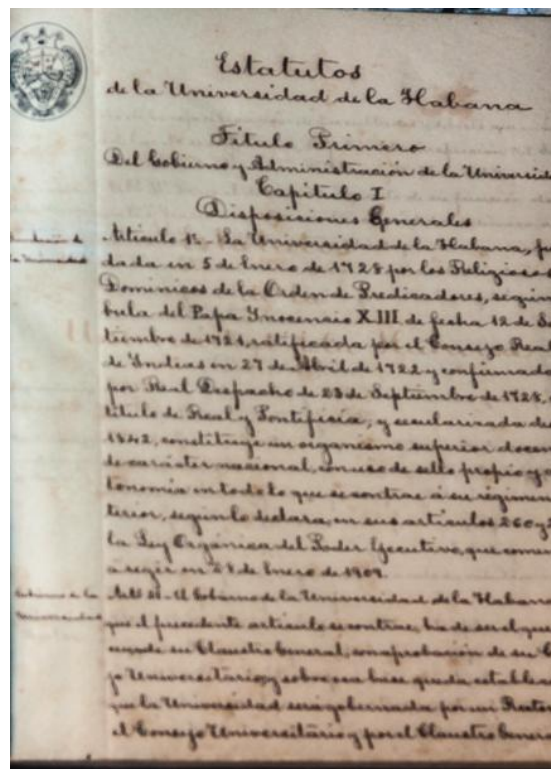 Estatutos
de la Universidad de la Habana
Título Primero
Del Gobierno y Administración de la Universid
Capítulo I
Disposiciones Generales
Artículo 1º.- La Universidad de la Habana, fun
dada en 5 de Enero de 1728 por los Religiosos
Dominicos de la Orden de Predicadores, según
bula del Papa Inocencio XIII de fecha 12 de Se
tiembre de 1721, ratificada por el Consejo Real
de Indias en 27 de Abril de 1722 y confirmado
por Real Despacho de 23 de Septiembre de 1728,
título de Real y Pontificia, y secularizada de
1842, constituye un organismo superior docen
de carácter nacional, con uso de sello propio y
tonomía en todo lo que se contrae á su régimen
terior, según lo declara, en sus artículos 260 y
la Ley Orgánica del Poder Ejecutivo, que comen
á regir en 28 de Enero de 1909.
Artº 2º.- El Gobierno de la Universidad de la Habana
que el precedente artículo se contrae, ha de ser el que
su Claustro General, con aprobación de su
jo Universitario, y sobre esa base queda estable
que la Universidad será gobernada por un Rector
el Consejo Universitario y por el Claustro General